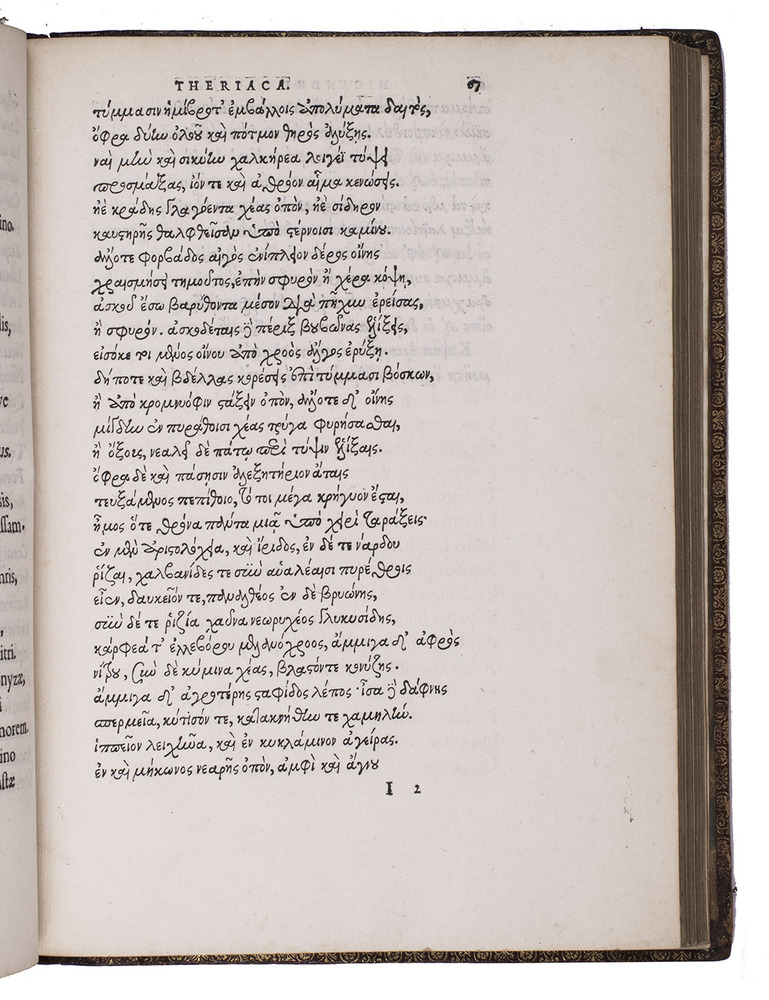 THERIACA. 67
τύμμασιν ἡμίβροτ' ἐμβάλλοις ἀπολύματα δαιτός,
ὄφρα δύην ὀλοοῦ καὶ πότμον θηρὸς ἀλύξῃς.
ναὶ μὴν καὶ σικύην χαλκήρεα λοιγέϊ τύψει
προσμάξας, ἰόν τε καὶ ἀθρόον αἷμα κενώσεις.
ἠὲ κράδης γλαγόεντα χέας ὀπὸν, ἠὲ σίδηρον
καυστηρῆς θαλφθεῖσαν ὑπὸ στέρνοισι καμίνου.
ἄλλοτε φορβάδος αἰγὸς ἐνίπλειον δέρος οἴνης
χραισμήσει τημοῦτος, ἐπὴν σφυρὸν ἢ χέρα κόψῃ,
ἀσκοῦ ἔσω βαρύθοντα μέσον διὰ πῆχυν ἐρείσας,
ἢ σφυρόν. ἀσκοδέταις δὲ πέριξ βουβῶνας ἑλίξεις,
εἰσόκε τοι μένος οἴνου ἀπὸ χροὸς ἄλγος ἐρύξῃ.
δή ποτε καὶ βδέλλας κορέσεις ἐπὶ τύμμασι βόσκων,
ἢ ἀπὸ κρομνυόφιν στάζειν ὀπὸν, ἄλλοτε δ' οἴνης
μίγδην ἐν πυράθοισι χέας τρύγα φυρήσασθαι,
ἢ ὄξους, νεαλεῖ δὲ πάτῳ περὶ τύψιν ἑλίξαις.
ὄφρα δὲ καὶ πάσῃσιν ἀλεξητήριον ἄταις
τευξάμενος πεπίθοιο, τό τοι μέγα κρήγυον ἔσται,
ἦμος ὅτε θρόνα πολλὰ μιᾷ ὑπὸ χειρὶ ταράξεις
ἐν μὲν ἀριστολόχεια, καὶ ἴριδος, ἐν δέ τε νάρδου
ῥίζαι, χαλβανίδες τε σὺν αὐαλέαισι πυρέθροις
εἶεν, δαυκεῖόν τε, πολυαλθέος ἐν δὲ βρυώνης,
σὺν δέ τε ῥιζία χαῦνα νεωρυχέος γλυκυσίδης,
κάρφεά τ' ἐλλεβόρου μελανόχροος, ἄμμιγα δ' ἀφρὸς
νίτρου, σὺν δὲ κύμινα χέας, βλαστόν τε κονύζης.
ἄμμιγα δ' ἀγροτέρης σταφίδος λέπος· ἶσα δὲ δάφνης
σπερμεῖα, κύτισόν τε, κατακνήθην τε χαμηλὴν.
ἱππεῖον λειχῆνα, καὶ ἐν κυκλάμινον ἀγείρας.
ἐν καὶ μήκωνος νεαρῆς ὀπὸν, ἀμφὶ καὶ ἄγνου
I 2